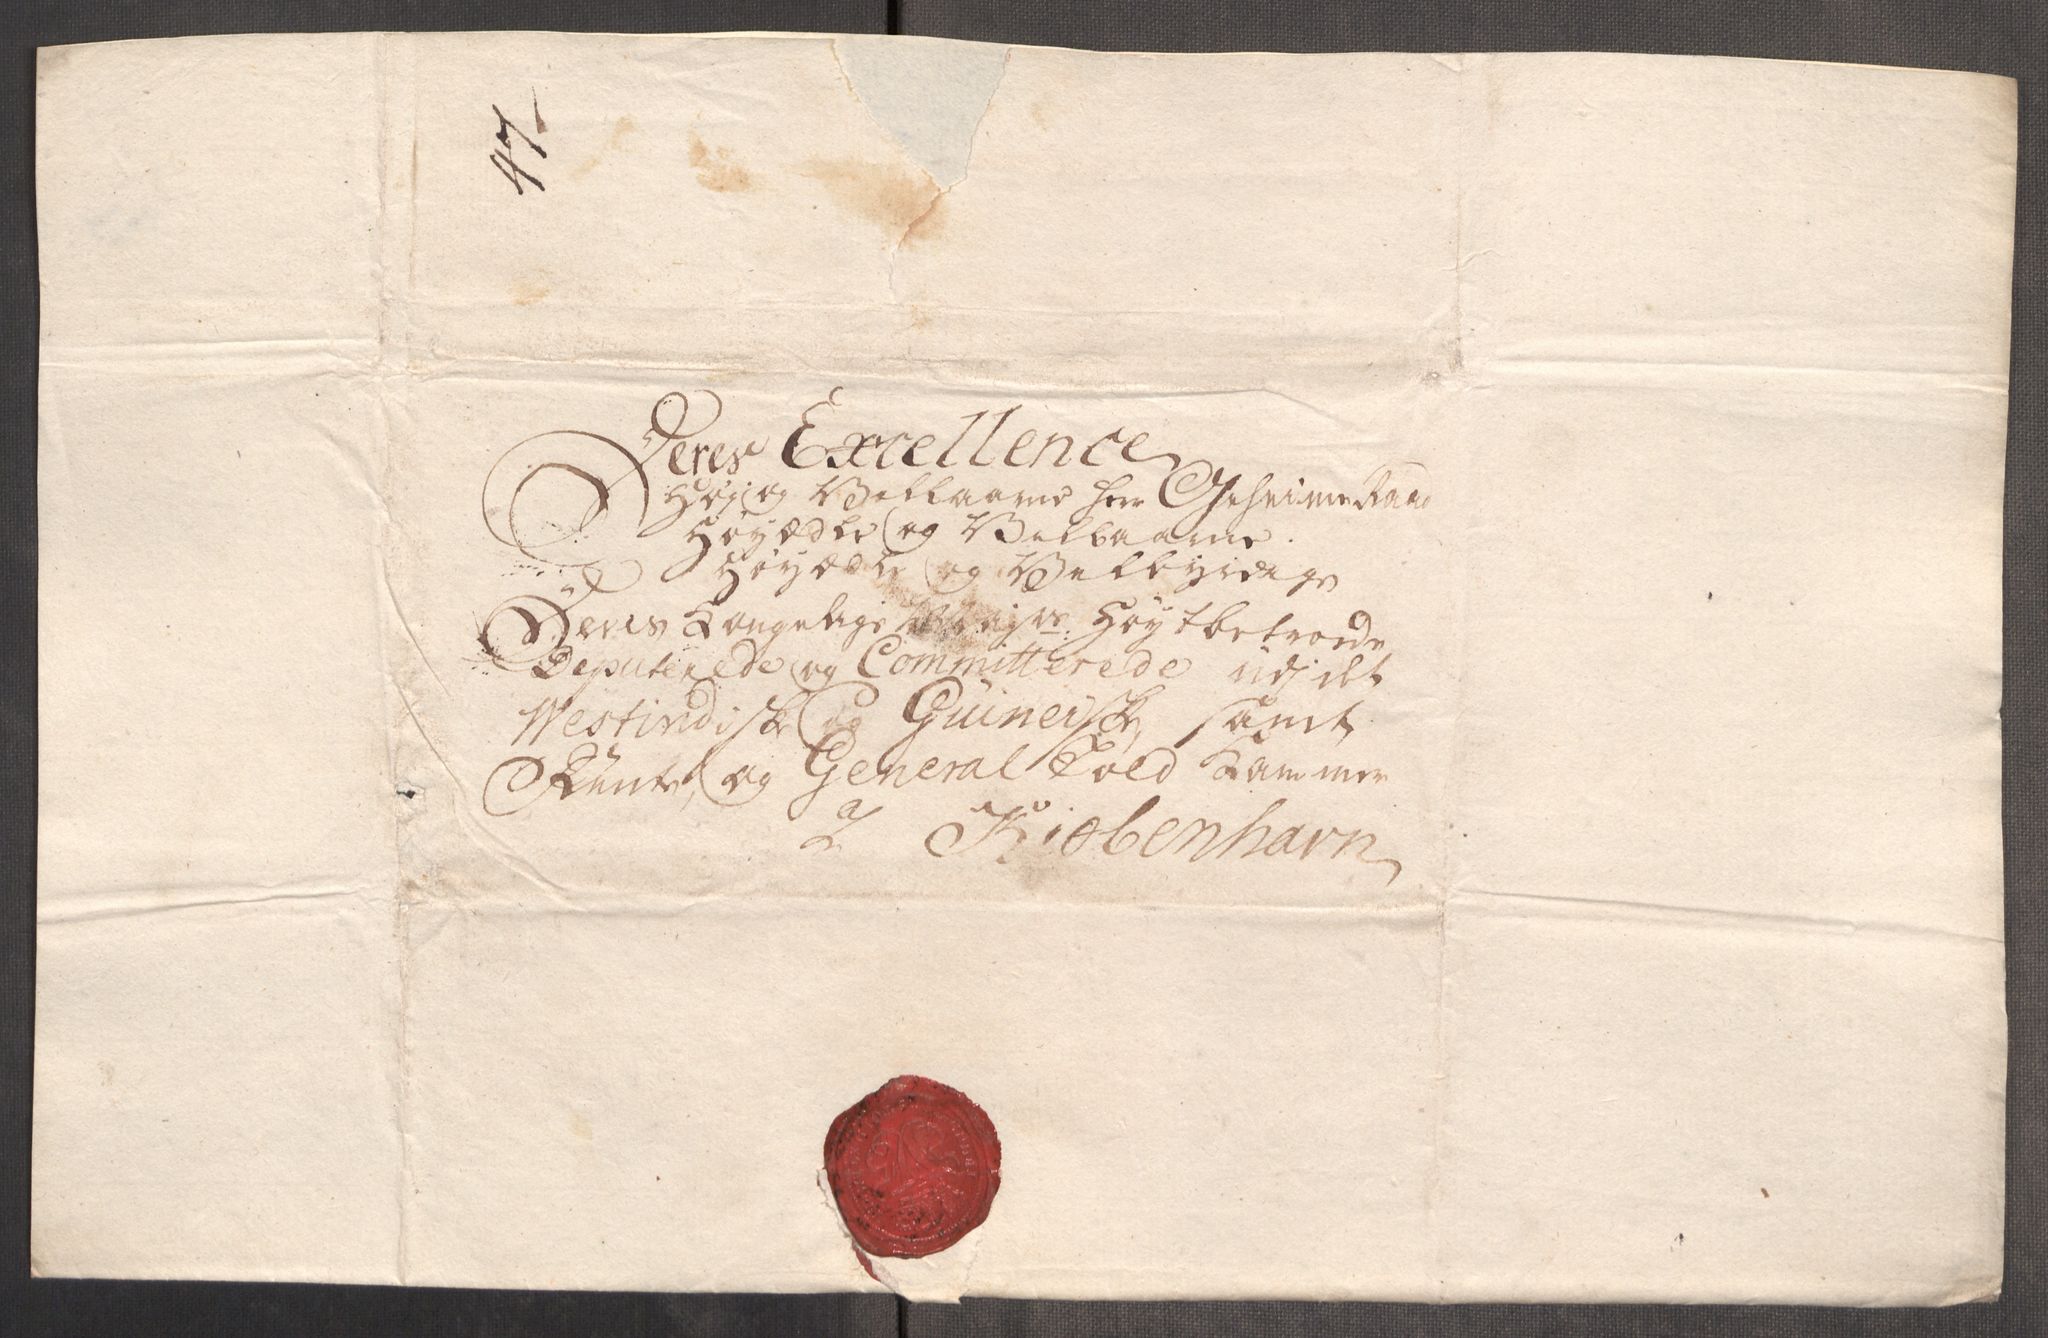 47
Deres Excellence
Høy og Velbaarne Herr Geheime Raad
Høyædle og Velbaarne.
Høyædle og Velbyrdige
Deres Kongelige May:ts Høytbetroede
Deputerede og Committerede udj det
Westindiske og Guineiske, samt
Rente, og General Told Kammer
a
Kiøbenhavn